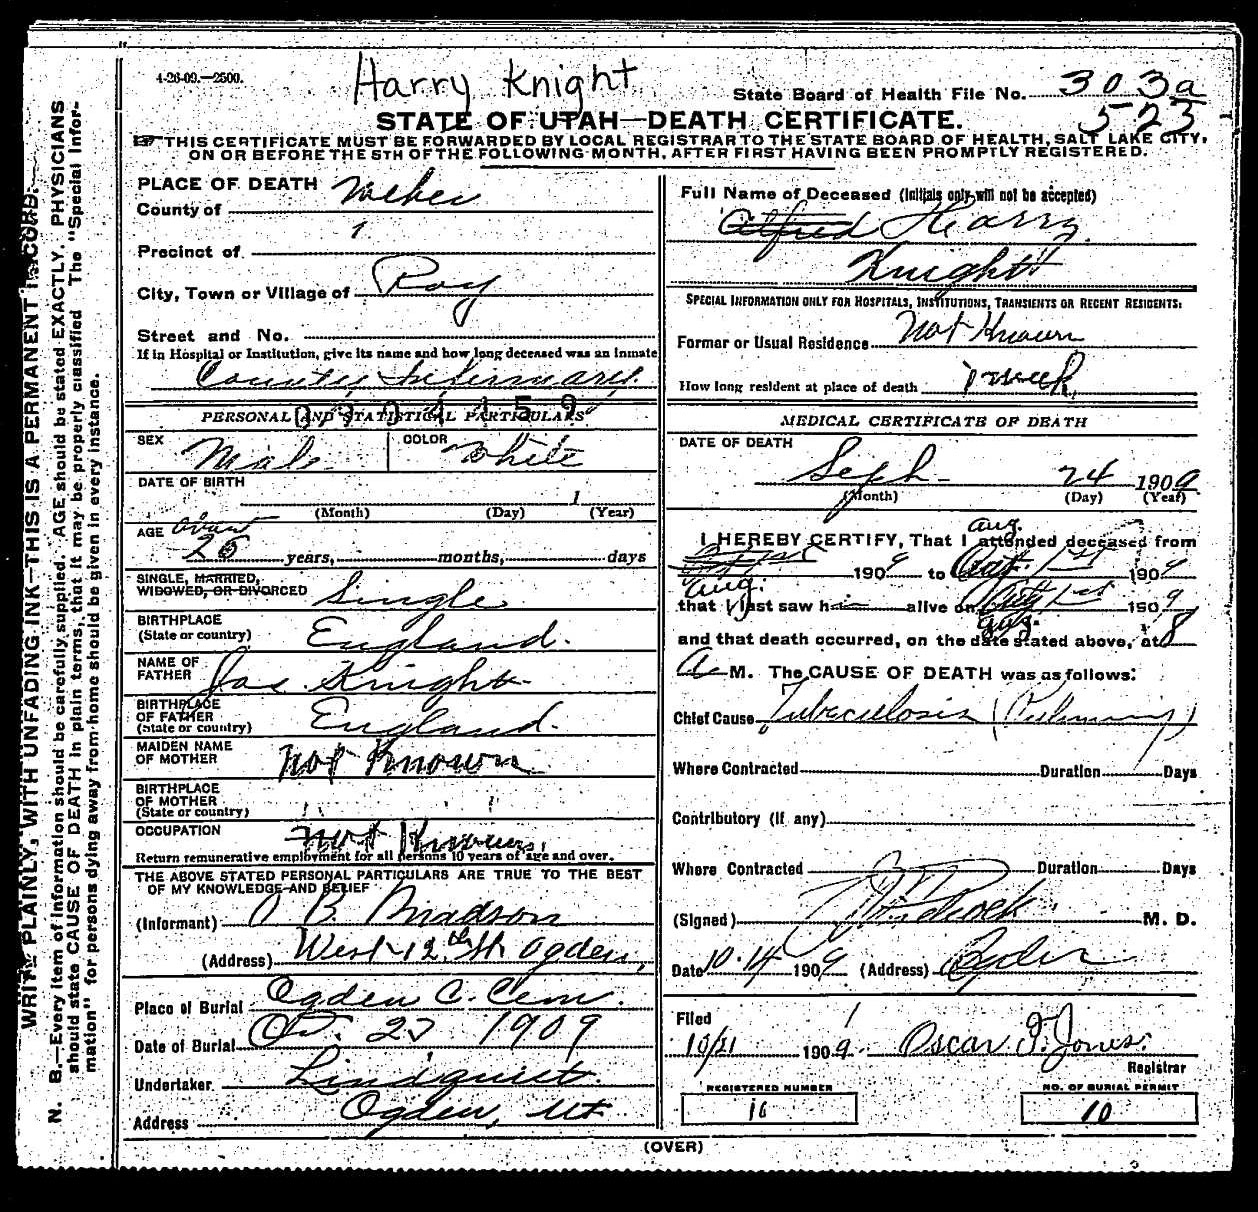 4-26-09.—2500.
Harry Knight
State Board of Health File No. 303a
523
STATE OF UTAH—DEATH CERTIFICATE.
THIS CERTIFICATE MUST BE FORWARDED BY LOCAL REGISTRAR TO THE STATE BOARD OF HEALTH, SALT LAKE CITY,
ON OR BEFORE THE 5TH OF THE FOLLOWING MONTH, AFTER FIRST HAVING BEEN PROMPTLY REGISTERED.
WRITE PLAINLY, WITH UNFADING INK—THIS IS A PERMANENT RECORD.
N. B.—Every item of information should be carefully supplied. AGE should be stated EXACTLY. PHYSICIANS
should state CAUSE OF DEATH in plain terms, that it may be properly classified. The "Special Infor-
mation" for persons dying away from home should be given in every instance.
PLACE OF DEATH
County of Weber
Precinct of 1
City, Town or Village of Roy
Street and No.
If in Hospital or Institution, give its name and how long deceased was an inmate
County Infirmary.
PERSONAL AND STATISTICAL PARTICULARS
SEX Male COLOR White
DATE OF BIRTH 1
(Month) (Day) (Year)
AGE about
26 years, months, days
SINGLE, MARRIED,
WIDOWED, OR DIVORCED Single
BIRTHPLACE
(State or country) England.
NAME OF
FATHER Jas. Knight
BIRTHPLACE
OF FATHER
(State or country) England.
MAIDEN NAME
OF MOTHER Not Known
BIRTHPLACE
OF MOTHER
(State or country)
OCCUPATION Not Known
Return remunerative employment for all persons 10 years of age and over.
THE ABOVE STATED PERSONAL PARTICULARS ARE TRUE TO THE BEST
OF MY KNOWLEDGE AND BELIEF
(Informant) O B. Madson
(Address) West 12th St. Ogden,
Place of Burial Ogden C. Cem.
Date of Burial 1909
Undertaker Lindquist.
Address Ogden, Ut
Full Name of Deceased (Initials only will not be accepted)
Alfred Harry
Knight
SPECIAL INFORMATION ONLY FOR HOSPITALS, INSTITUTIONS, TRANSIENTS OR RECENT RESIDENTS:
Former or Usual Residence Not Known
How long resident at place of death 1 week
MEDICAL CERTIFICATE OF DEATH
DATE OF DEATH
Seph 24 1909
(Month) (Day) (Year)
I HEREBY CERTIFY, That I attended deceased from
Aug.
1909 to Oct. 1st 1909
Aug.
that I last saw him alive on 1st 1909
Aug.
and that death occurred, on the date stated above, at 8
A M. The CAUSE OF DEATH was as follows:
Chief Cause Tuberculosis (Pulmonary)
Where Contracted Duration Days
Contributory (if any)
Where Contracted Duration Days
(Signed) M. D.
Date 10-14 1909 (Address) Ogden
Filed
10/21 1909. Oscar T. Jones.
Registrar
REGISTERED NUMBER
NO. OF BURIAL PERMIT
10
(OVER)